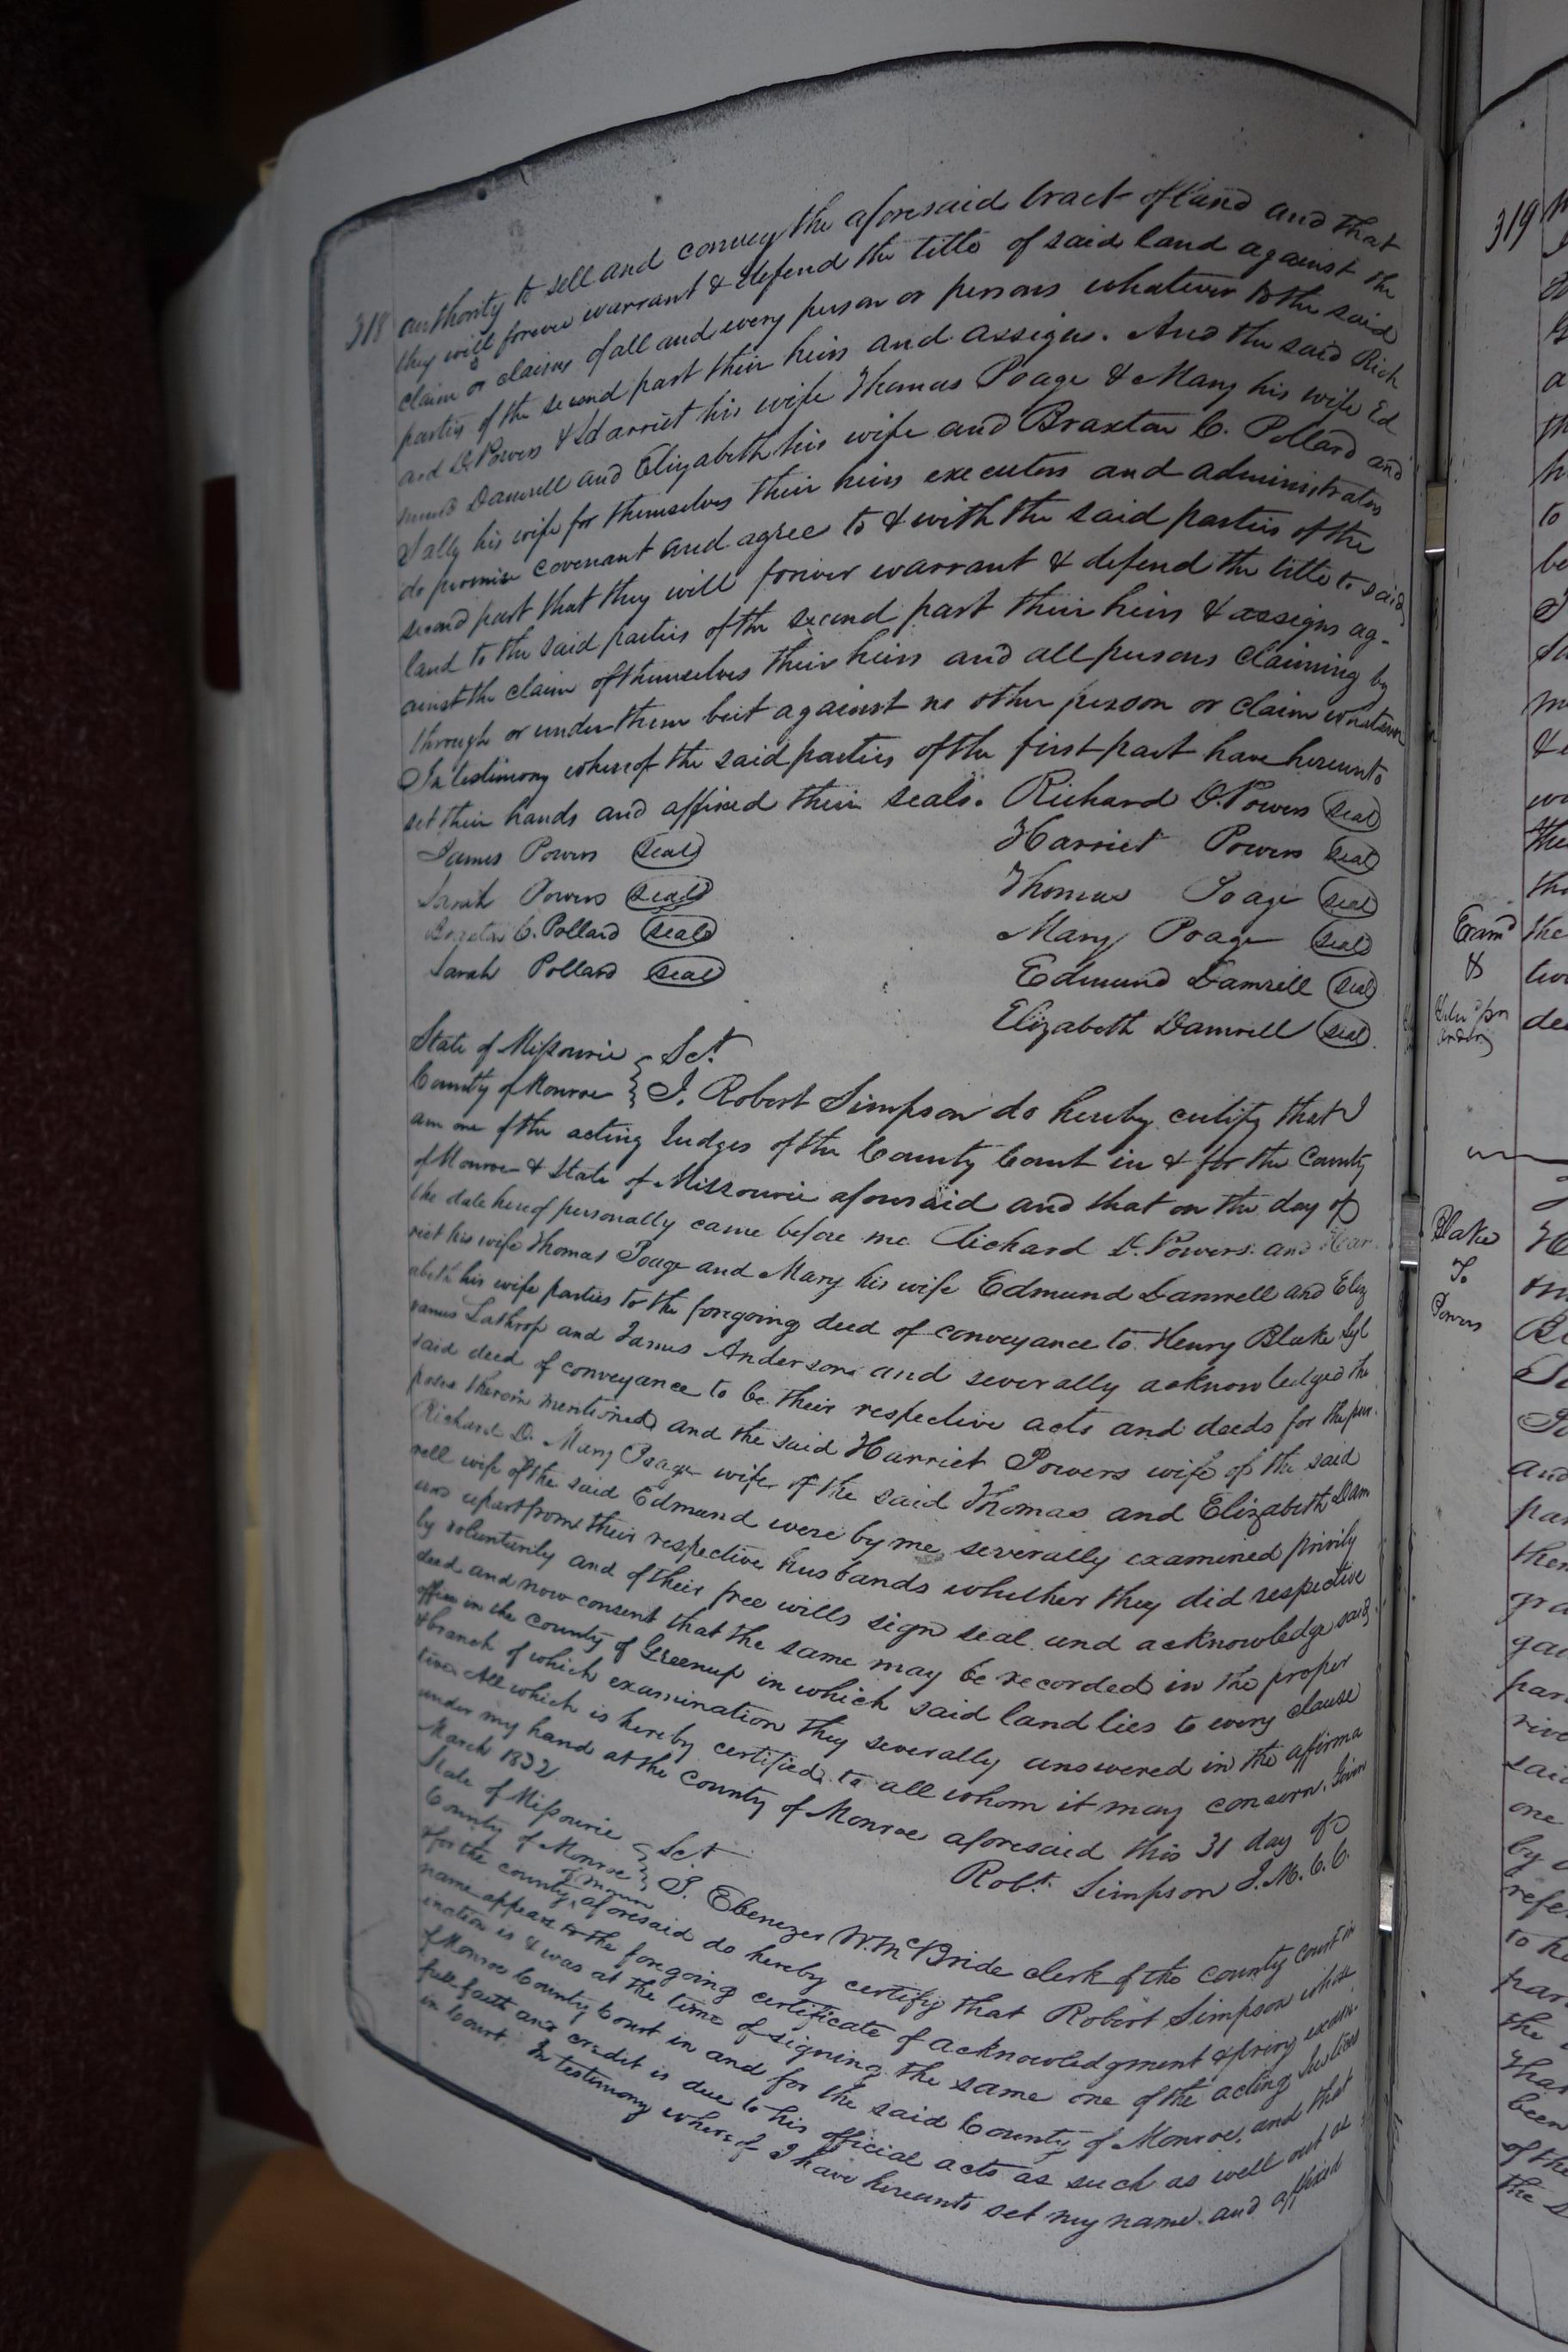 318
authority to sell and convey the aforesaid tract of land and that
they will forever warrant & defend the title of said land against the
claim or claims of all and every person or persons whatever to the said
parties of the second part their heirs and assigns. And the said Rich
ard D. Powers & Harriet his wife Thomas Poage & Mary his wife Ed
mund Damrell and Elizabeth his wife and Braxton C. Pollard and
Sally his wife for themselves their heirs executors and administrators
do promise covenant and agree to & with the said parties of the
second part that they will forever warrant & defend the title to said
land to the said parties of the second part their heirs & assigns ag-
ainst the claim of themselves their heirs and all persons claiming by
through or under them but against no other person or claim whatever
In testimony whereof the said parties of the first part have hereunto
set their hands and affixed their seals. Richard D. Powers seal
James Powers seal Harriet Powers seal
Sarah Powers seal Thomas Poage seal
Braxton C. Pollard seal Mary Poage seal
Sarah Pollard seal Edmund Damrell seal
Elizabeth Damrell seal
State of Missourie Sct.
County of Monroe } I. Robert Simpson do hereby certify that I
am one of the acting Judges of the County Court in & for the County
of Monroe & State of Missourie aforesaid and that on the day of
the date hereof personally came before me Richard D. Powers and Har
riet his wife Thomas Poage and Mary his wife Edmund Damrell and Eliz
abeth his wife parties to the foregoing deed of conveyance to Henry Blake Syl
vanus Lathrop and James Anderson and severally acknowledged the
said deed of conveyance to be their respective acts and deeds for the pur
poses therein mentioned and the said Harriet Powers wife of the said
Richard D. Mary Poage wife of the said Thomas and Elizabeth Dam
rell wife of the said Edmund were by me severally examined privily
and apart from their respective husbands whether they did respective
by voluntarily and of their free wills sign seal and acknowledge said
deed and now consent that the same may be recorded in the proper
office in the county of Greenup in which said land lies to every clause
& branch of which examination they severally answered in the affirma
tive All which is hereby certified to all whom it may concern. Given
under my hand at the county of Monroe aforesaid this 31 day of
March 1832. Robt. Simpson J. M. C. C.
State of Missourie Sct
County of Monroe } I. Ebenezer W. McBride clerk of the county court in
&for the county of Monroe aforesaid do hereby certify that Robert Simpson whose
name appears to the foregoing certificate of acknowledgment & privy exam-
ination is & was at the time of signing the same one of the acting Justices
of Monroe County Court in and for the said County of Monroe, and that
full faith and credit is due to his official acts as such as well out as
in Court. In testimony whereof I have hereunto set my name and affixed
319
Exam'd
&
Blake
To
Powers